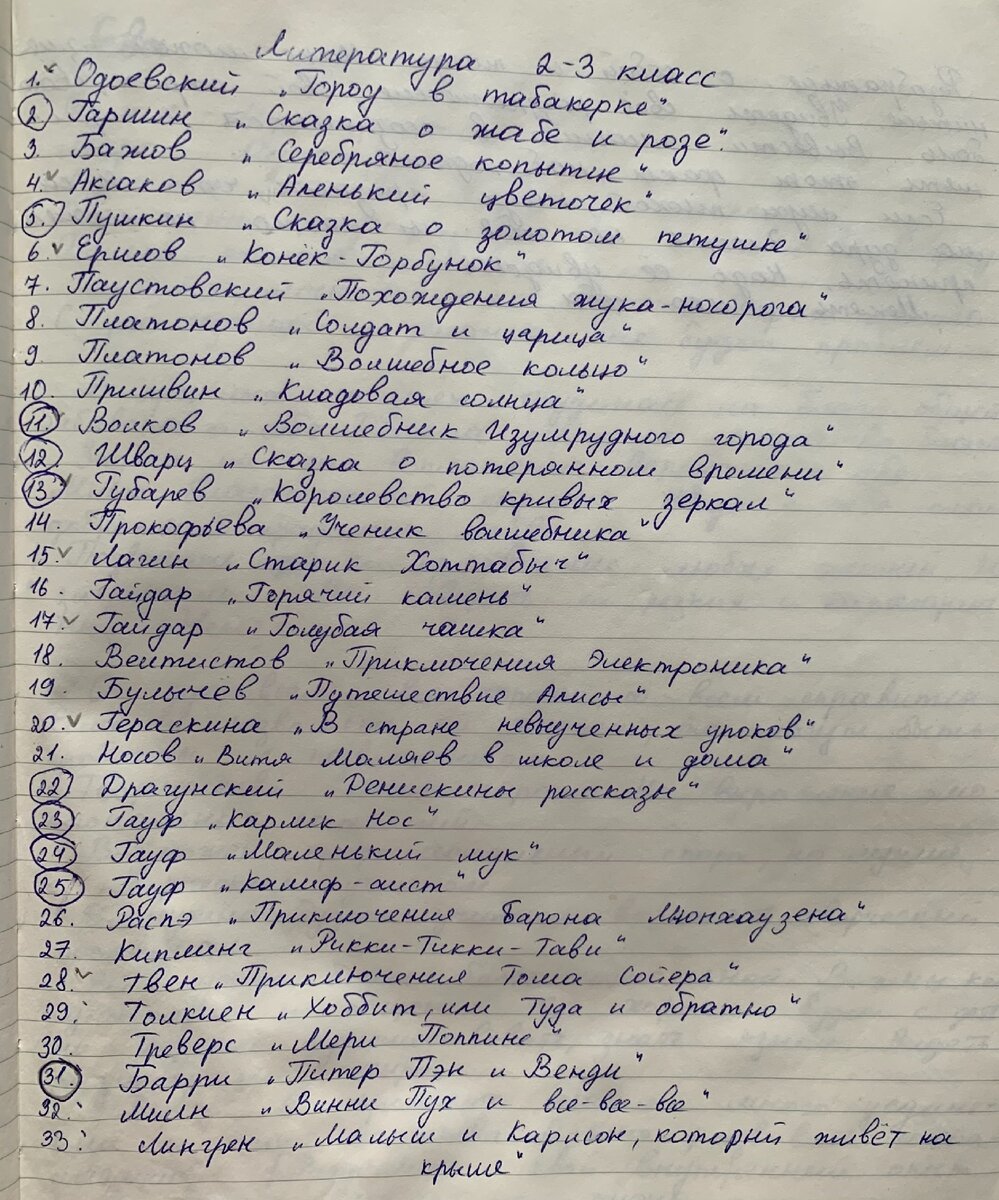 Литература 2-3 класс
1. Одоевский „Город в табакерке"
2. Гаршин „Сказка о жабе и розе".
3. Бажов „Серебряное копытце"
4. Аксаков „Аленький цветочек"
5. Пушкин „Сказка о золотом петушке"
6. Ершов „Конёк-Горбунок"
7. Паустовский „Похождения жука-носорога"
8. Платонов „Солдат и царица"
9 Платонов „Волшебное кольцо"
10. Пришвин „Кладовая солнца"
11. Волков „Волшебник Изумрудного города"
12. Шварц „Сказка о потерянном времени"
13. Губарев „Королевство кривых зеркал"
14. Прокофьева „Ученик волшебника"
15. Лагин „Старик Хоттабыч"
16. Гайдар „Горячий камень"
17. Гайдар „Голубая чашка"
18. Велтистов „Приключения Электроника"
19. Булычёв „Путешествие Алисы"
20. Гераскина „В стране невыученных уроков"
21. Носов „Витя Малаев в школе и дома"
22. Драгунский „Денискины рассказы"
23. Гауф „Карлик Нос"
24. Гауф „Маленький мук"
25. Гауф „Калиф-аист"
26. Распэ „Приключения Барона Мюнхаузена"
27. Киплинг „Рикки-Тикки-Тави"
28. Твен „Приключения Тома Сойера"
29. Толкиен „Хоббит, или Туда и обратно"
30. Треверс „Мери Поппинс"
31. Барри „Питер Пэн и Венди"
32. Милн „Винни Пух и все-все-все"
33. Лингрен „Малыш и Карлсон, который живёт на
крыше"